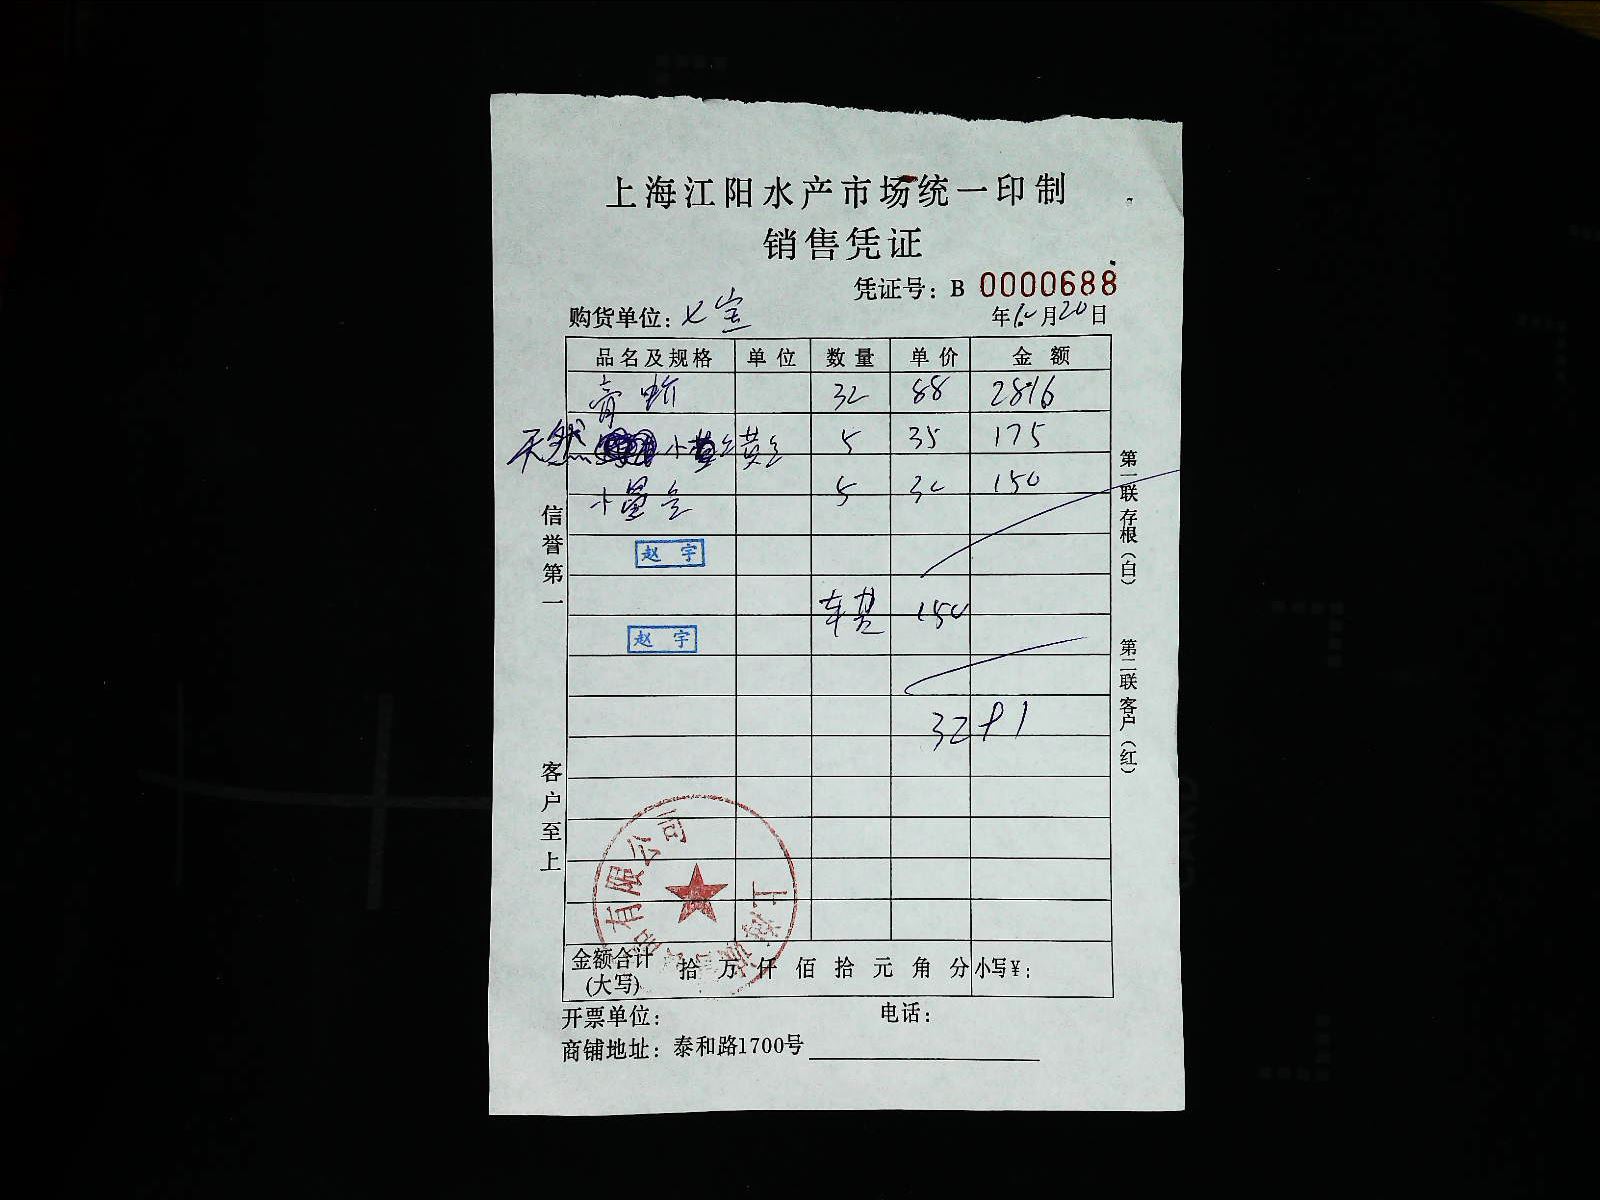 上海江阳水产市场统一印制
销售凭证
凭证号：B 0000688
购货单位：七宝
年 月20日
品名及规格 单位 数量 单价 金额
青 32 88 2816
天然 小黄 5 35 175
小 5 30 150
赵宇
车费 150
赵宇
3291
信誉第一
客户至上
第一联存根（白）
第二联客户（红）
上海 有限公司
金额合计(大写) 拾万仟佰拾元角分 小写¥：
开票单位： 电话：
商铺地址：泰和路1700号